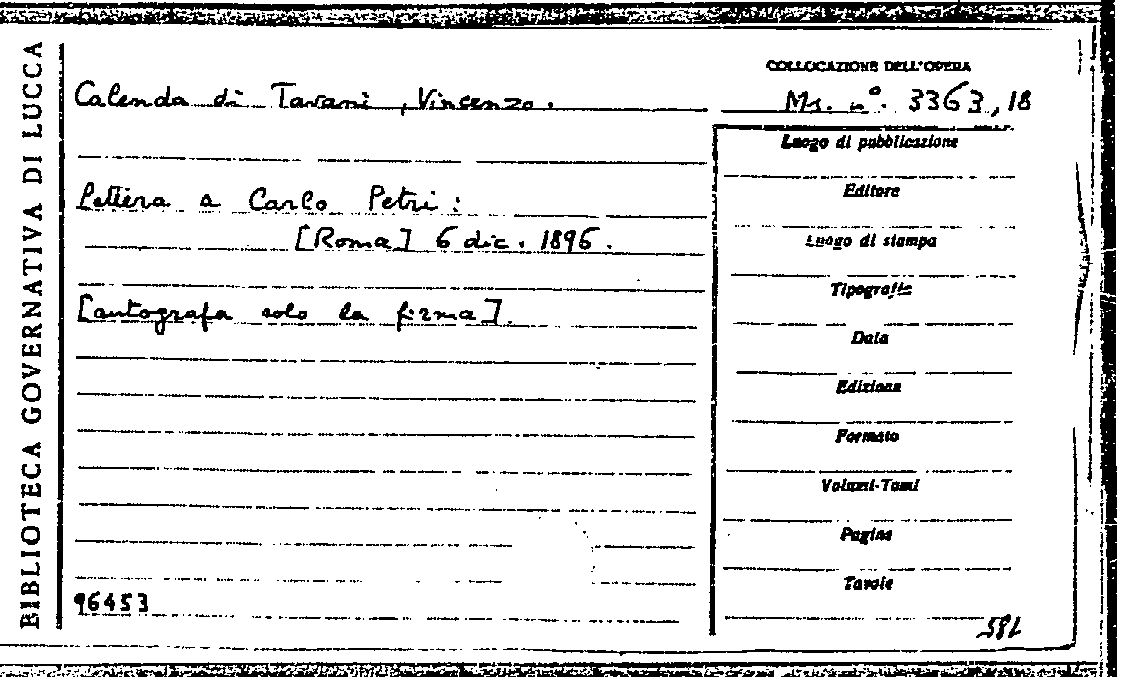 BIBLIOTECA GOVERNATIVA DI LUCCA
COLLOCAZIONE DELL'OPERA
Calenda di Tavani, Vincenzo.
Ms. n°. 3363, 18
Luogo di pubblicazione
Lettera a Carlo Petri:
Editore
[Roma] 6 dic. 1896.
Luogo di stampa
Tipografia
[autografa solo la firma].
Data
Edizione
Formato
Volumi-Tomi
Pagine
Tavole
96453